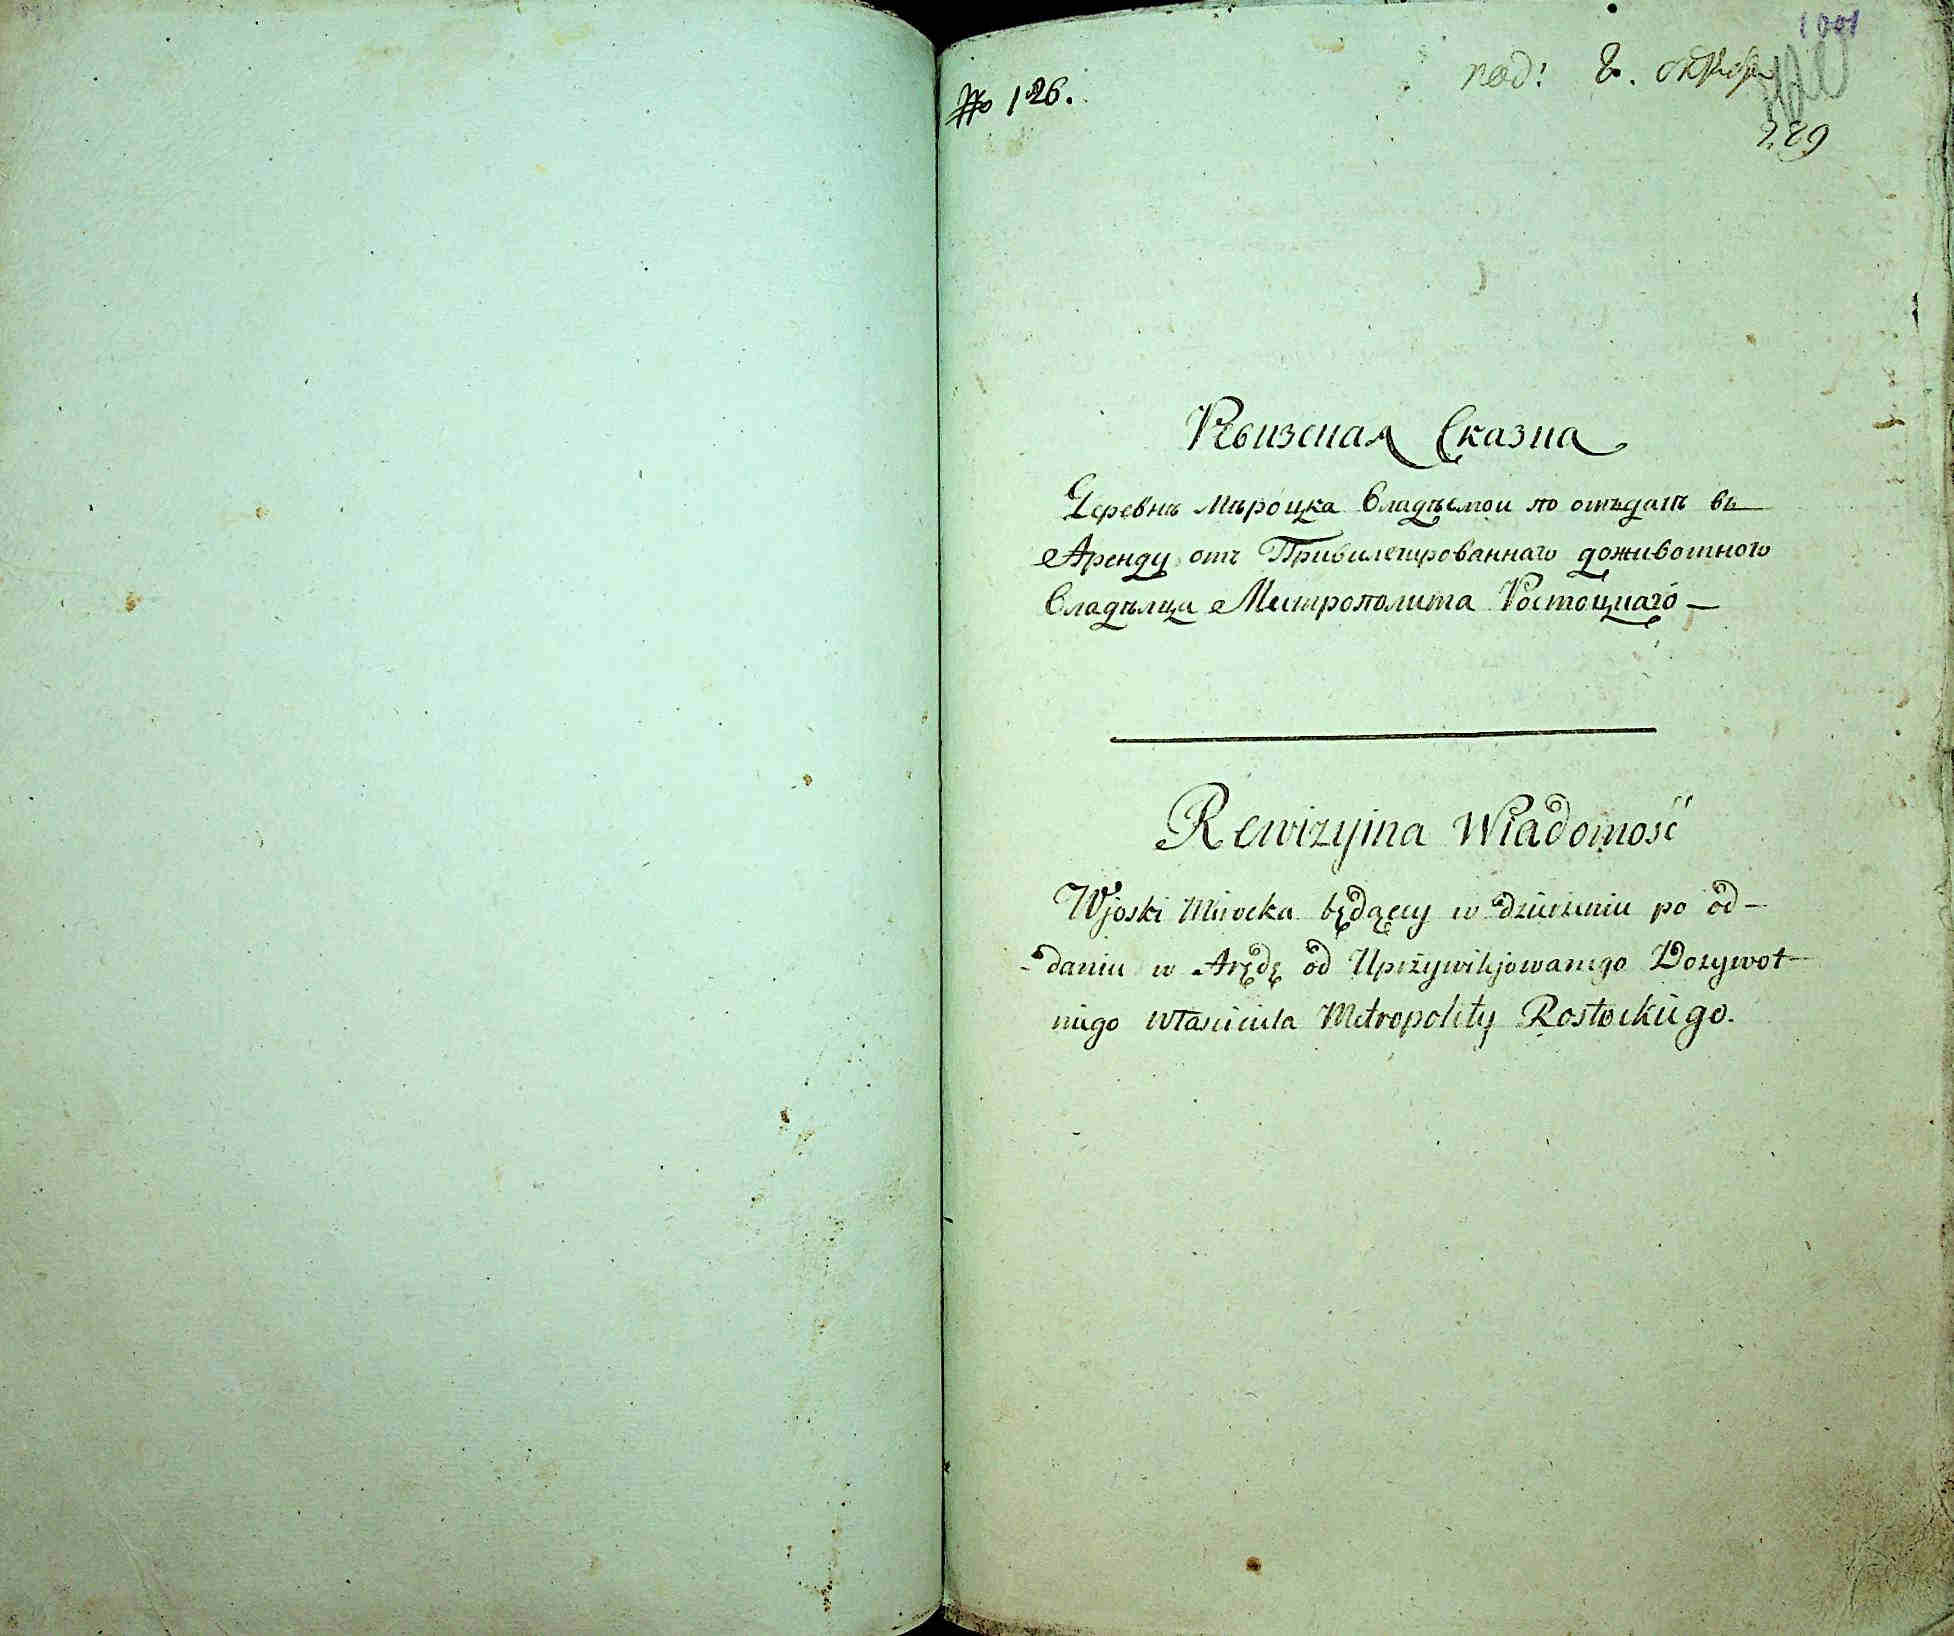 № 126.
под: 8. октября
1001
229
Ревизская Сказка
Деревнѣ Мѣроцка владѣемои по отъдатѣ въ
Аренду отъ Привилегированнаго доживотного
Владѣлца Метрополита Ростоцкаго —
Rewizyina Wiadomość
Wjoski Mirocka będącey w dzierżeniu po od-
-daniu w Arędę od Uprzywilejowanego Dozywot-
niego własciciela Metropolity Rostockiego.